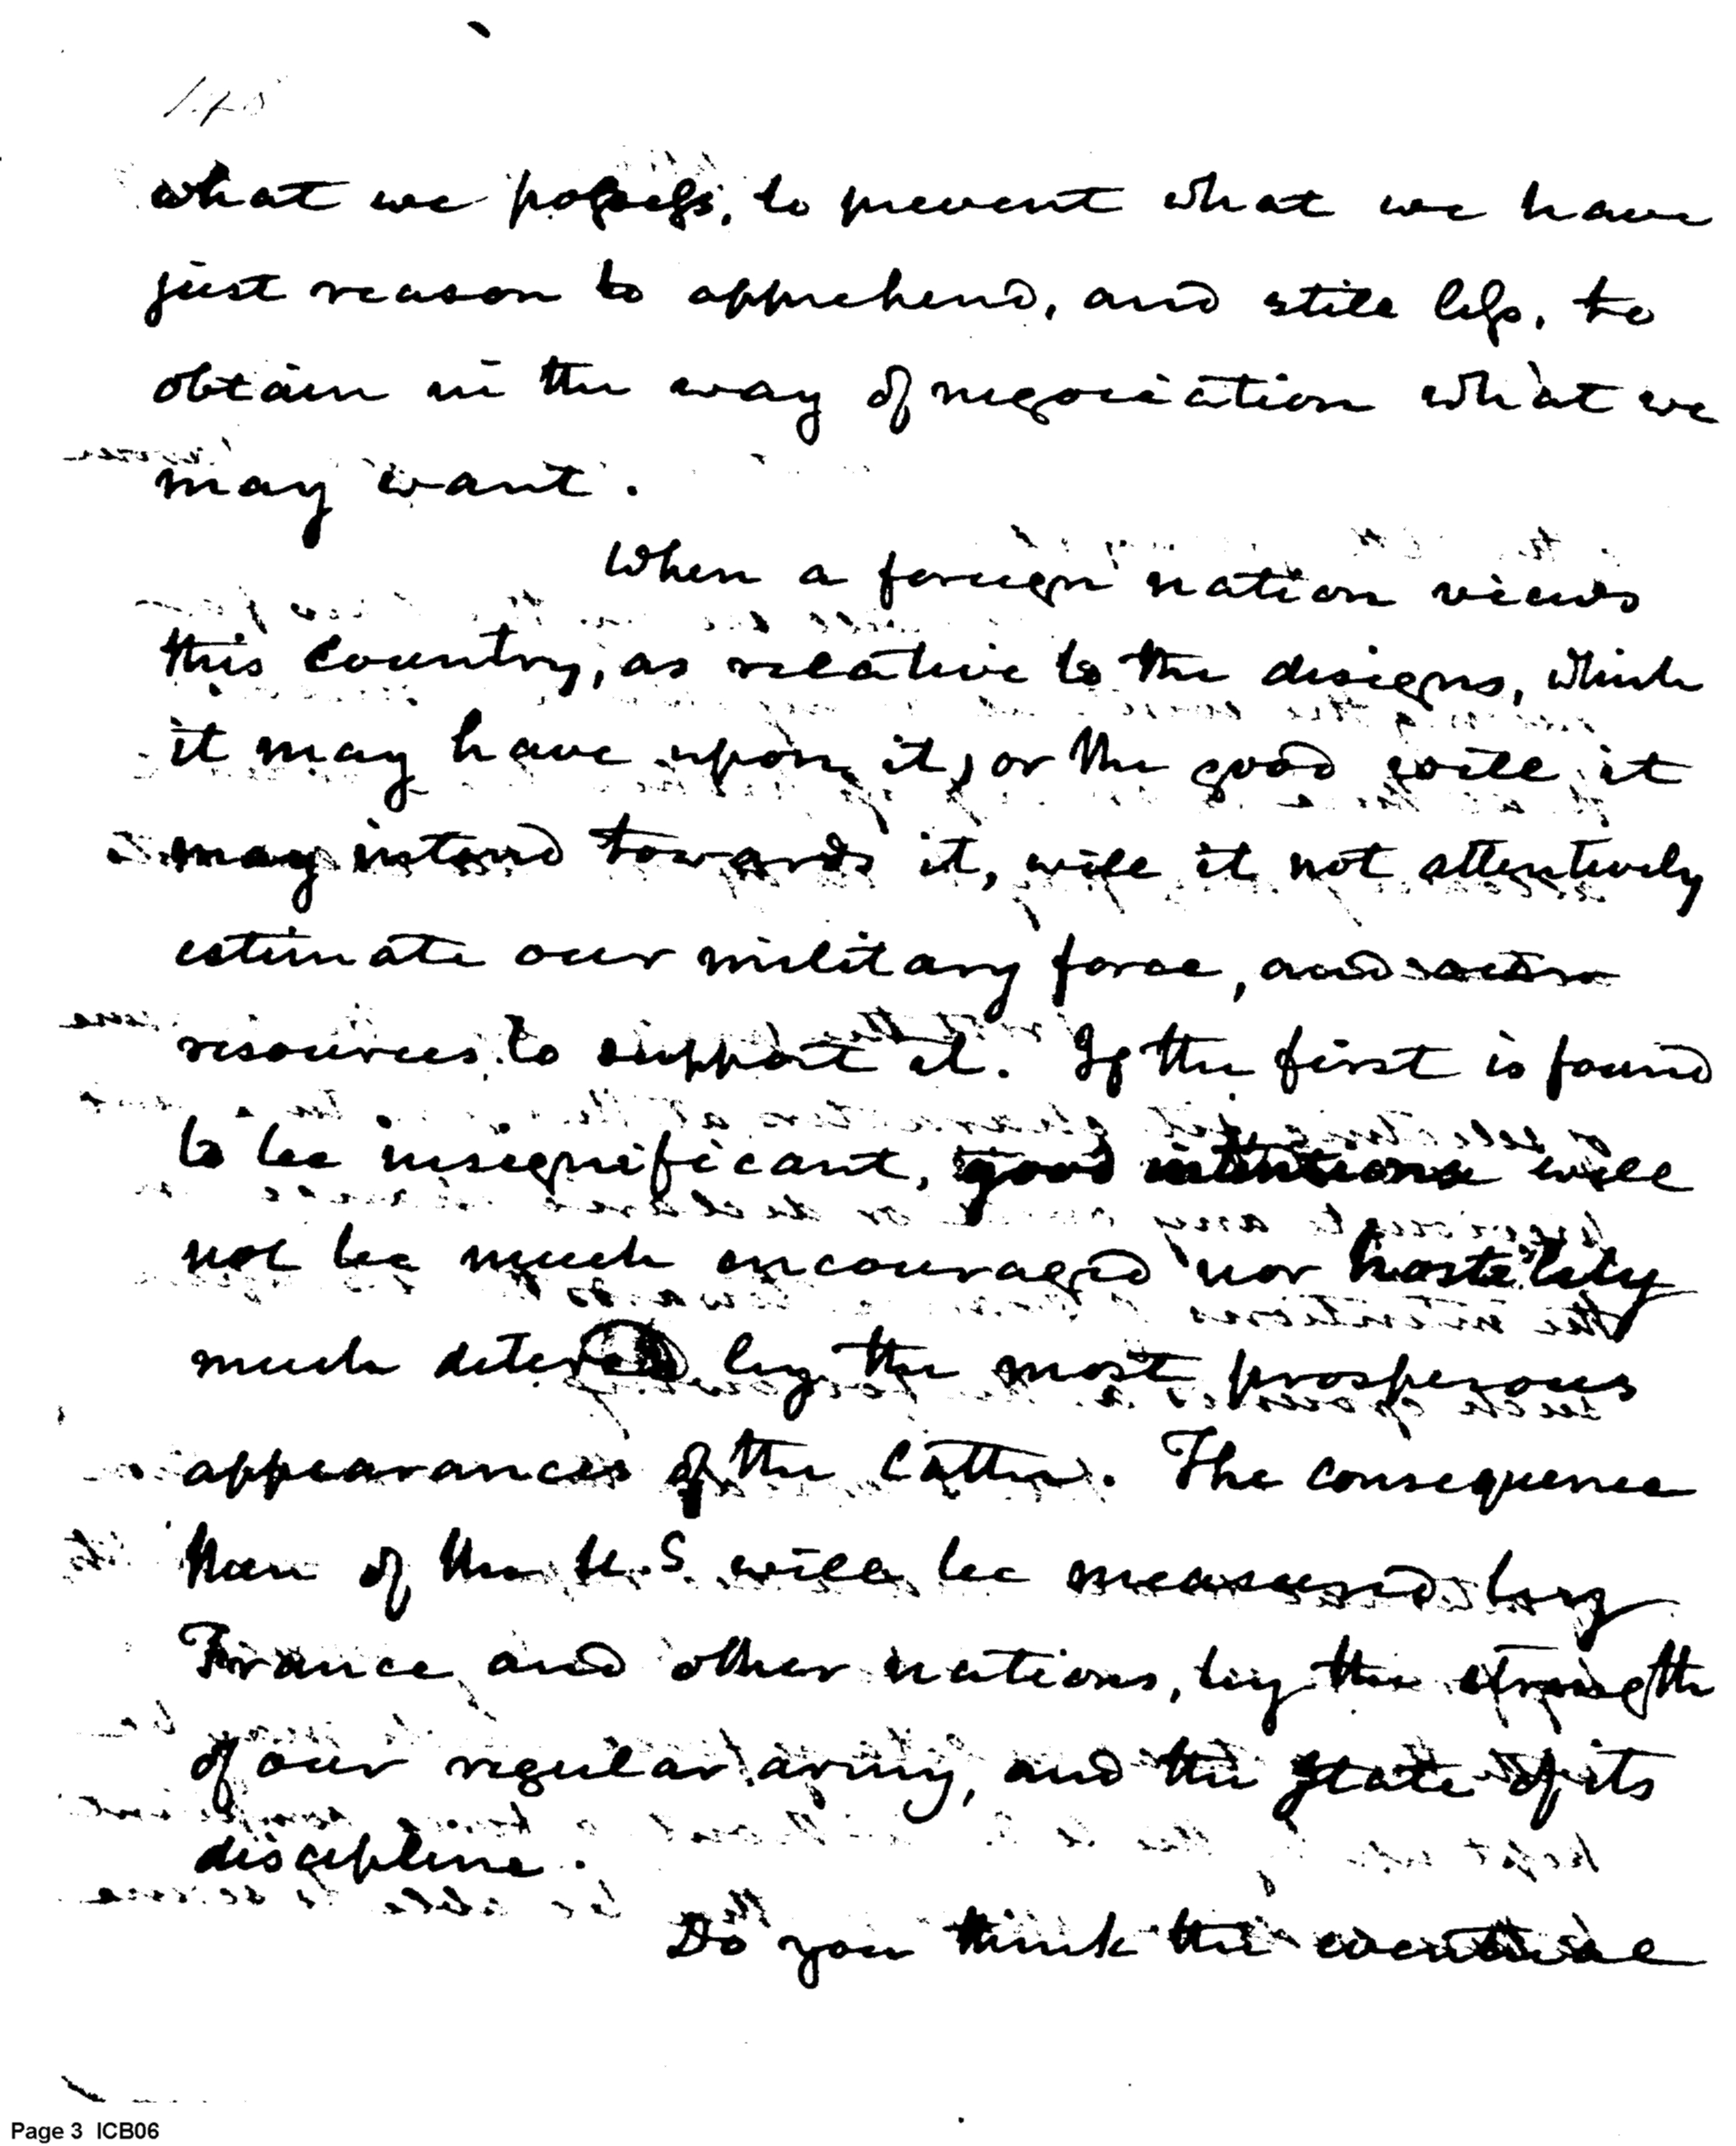 148
what we possess, to prevent what we have
just reason to apprehend, and still less, to
obtain in the way of negociation what we
may want.
When a foreign nation views
this Country, as relative to the designs, which
it may have upon it, or the good will it
may intend towards it, will it not attentively
estimate our military force, and
resources to support it. If the first is found
to be insignificant, good intentions will
not be much encouraged nor hostility
much detered by the most prosperous
appearances of the latter. The consequence
then of the U.S. will be measured by
France and other nations, by the strength
of our regular army, and the state of its
discipline.
Do you think the eventual
Page 3 ICB06